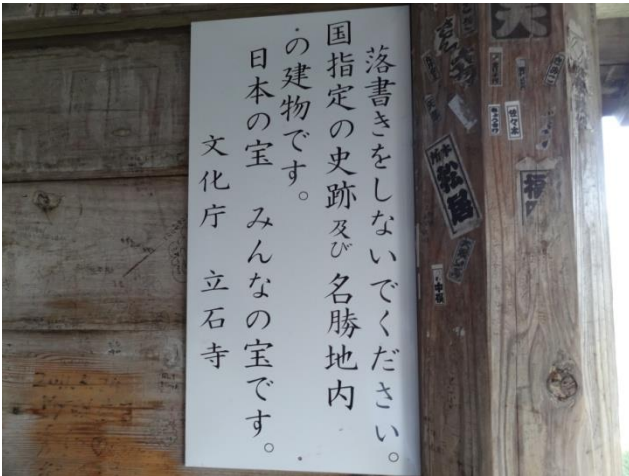 落書きをしないでください。
国指定の史跡及び名勝地内
の建物です。
日本の宝　みんなの宝です。
文化庁　立石寺
佐々木
松居